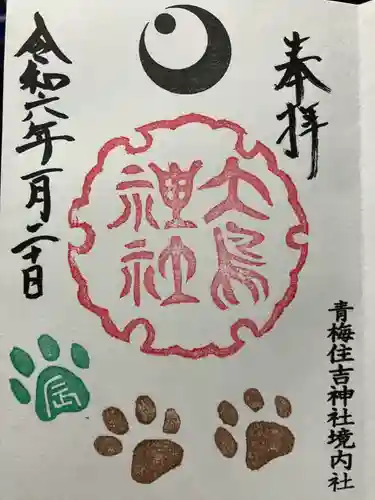 奉拝
青梅住吉神社境内社
大鳥
神社
令和六年一月二十日